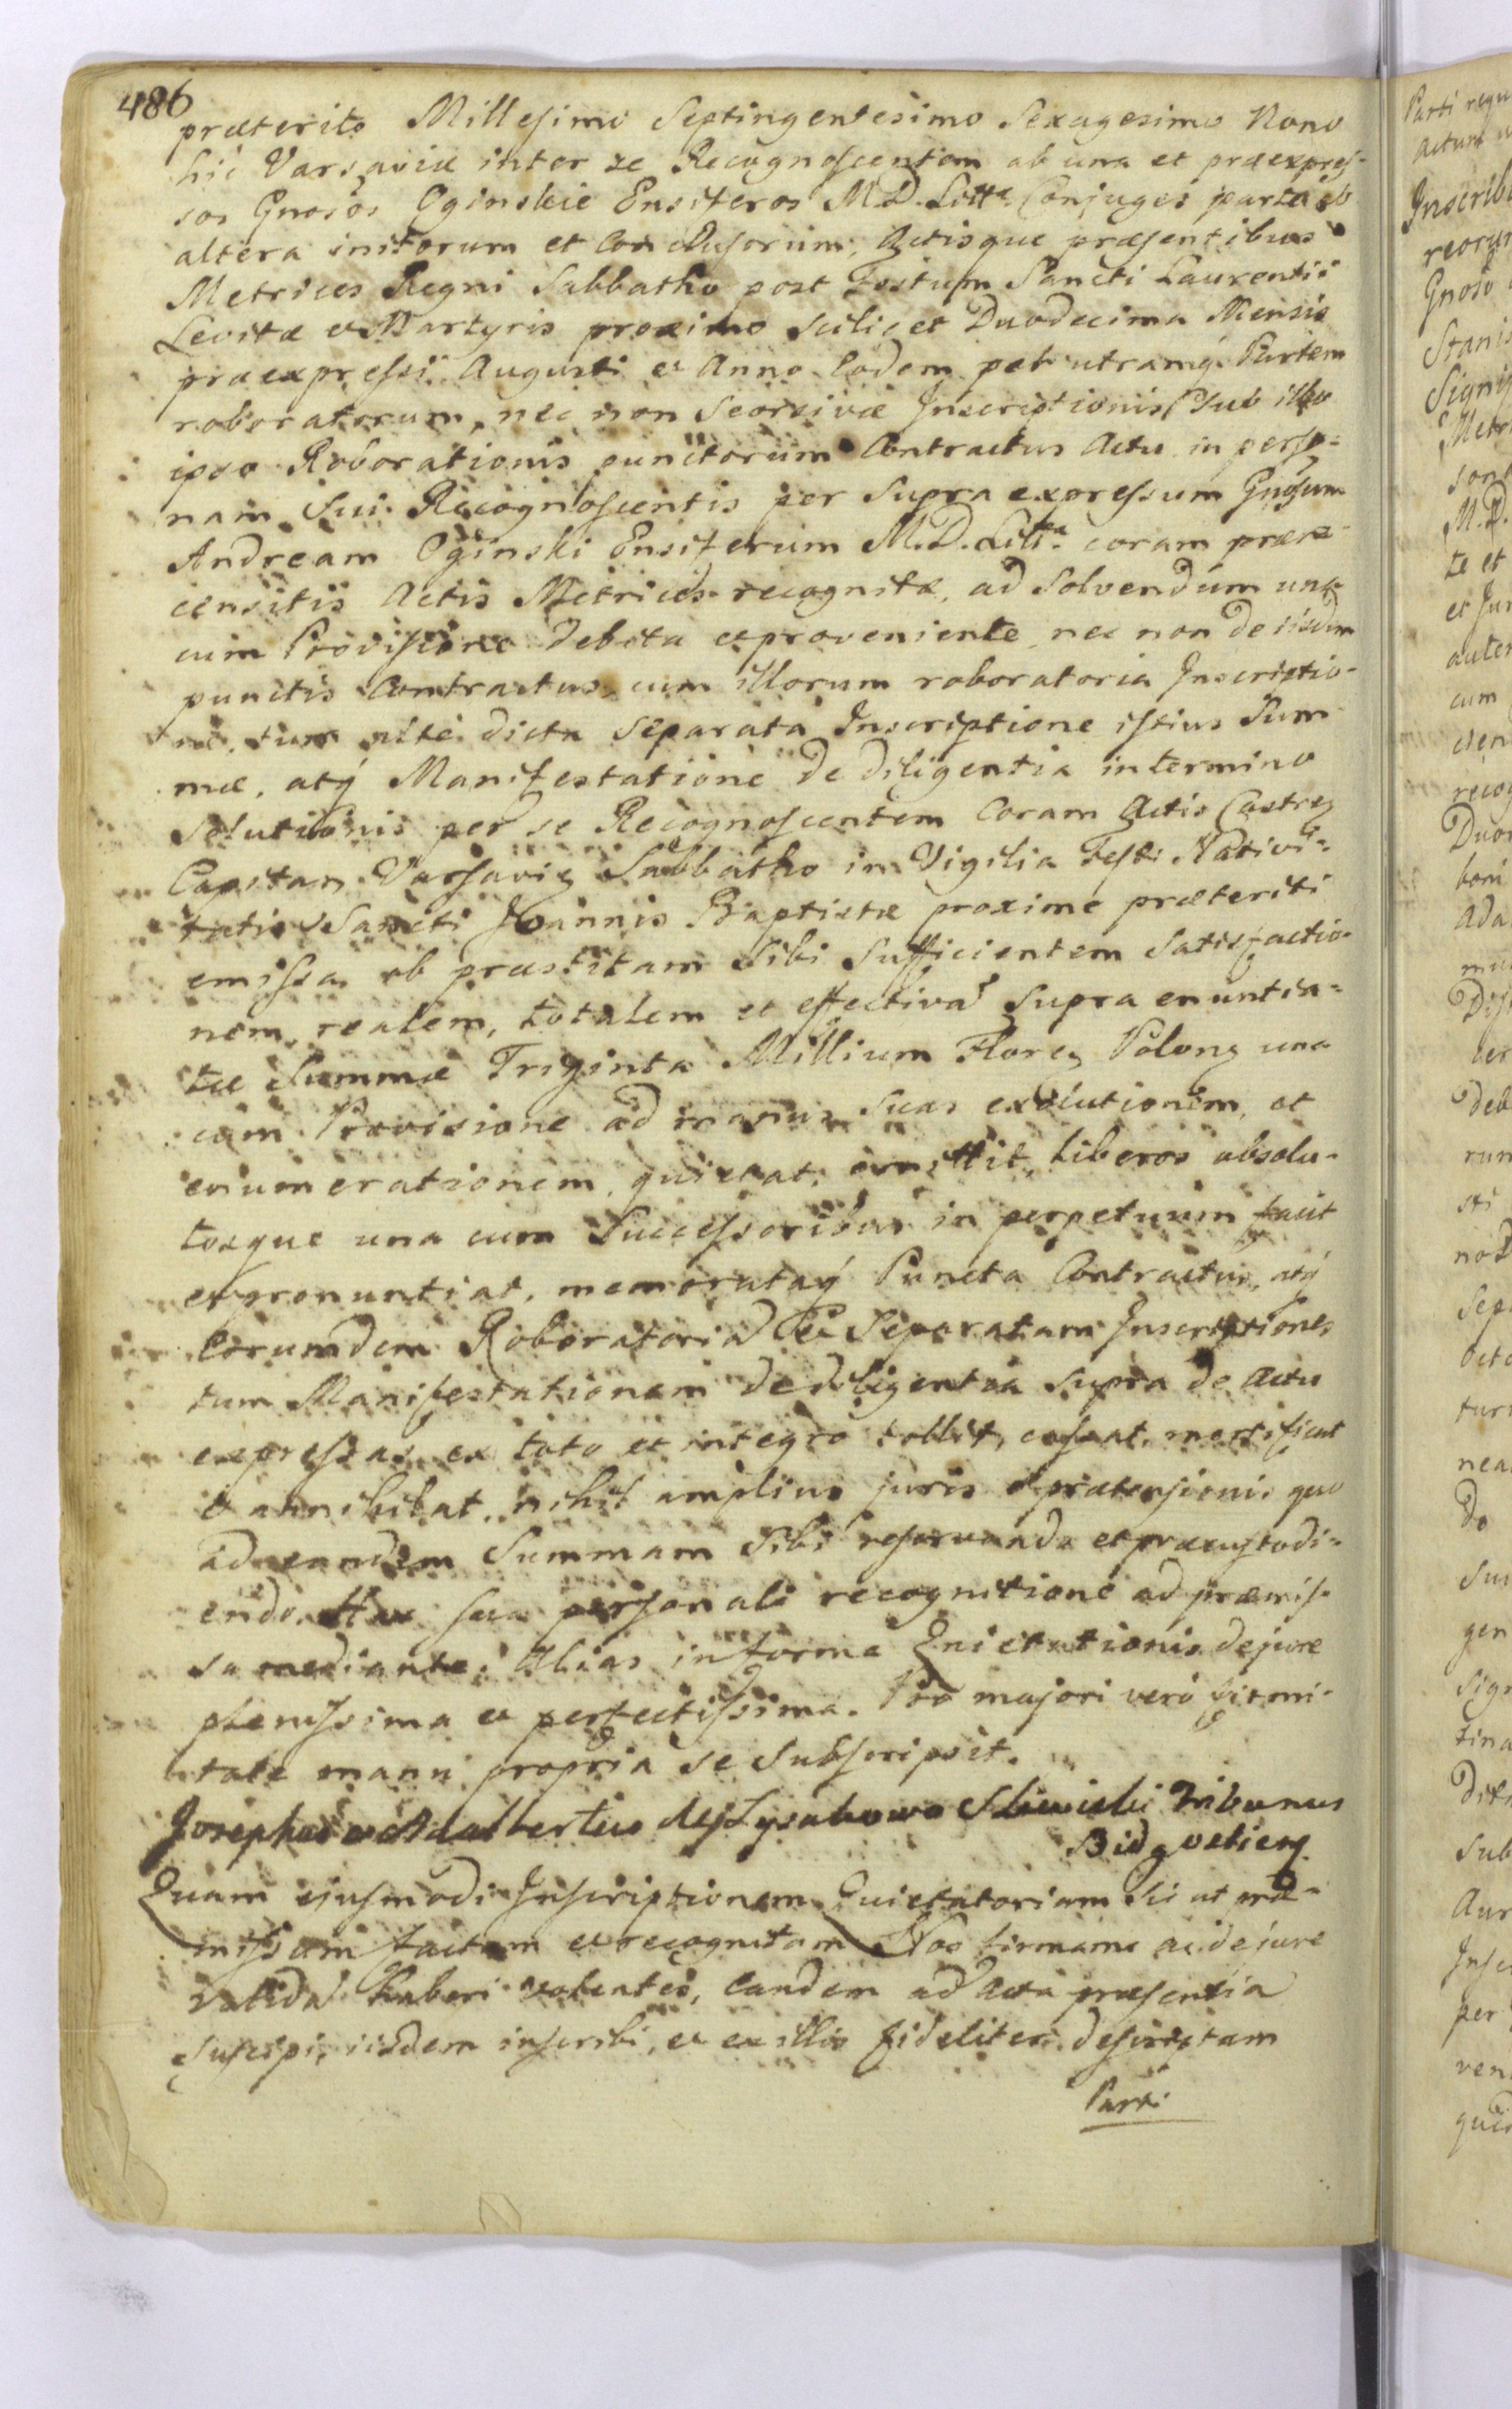 486
præterito Millesimo Septingentesimo Sexagesimo Nono
hic Varsaviæ inter se Recognoscentem ab una et præexpres-
sos Gnosos Oginskie Ensiferos M.D. Litt. Conjuges parte ab
altera initorum et Conclusorum, Actisque præsentibus
Metrices Regni Sabbatho post Festum Sancti Laurentii
Levitæ et Martyris proximo scilicet Duodecima Mensis
præexpressi Augusti et Anno Eodem per utramq. Partem
roboratorum, nec non Seorsivæ Inscriptionis Sub illo
ipso Roborationis punctorum Contractus Actu in perso-
nam Sui Recognoscentis per Supra expressum Gnosum
Andream Oginski Ensiferum M.D. Litt. coram prære-
censitis Actis Metrices recognitæ, ad Solvendum una
cum Provisione Debita et proveniente, nec non de iisdem
punctis Contractus cum illorum roboratoria Inscriptio-
ne, tum alte dicta Separata Inscriptione istius Sum
mæ, atq. Manifestatione de diligentia in termino
Solutionis per se Recognoscentem Coram Actis Castren
Capitan Varsavien Sabbatho in Vigilia Festi Nativi-
tatis Sancti Joannis Baptistæ proxime præteriti
emissa ob præstitam Sibi Sufficientem Satisfactio-
nem, realem, totalem et effectivam Supra enuntia-
tæ Summæ Triginta Millium Floren Polon una
cum Provisione ad manus suas exolutionem, et
enumerationem, quietat, emittit, Liberos absolu-
tosque una cum Successoribus in perpetuum facit
et pronuntiat, memorataq. Puncta Contractus, atq.
Eorumdem Roboratoriam et Separatam Inscriptiones
tum Manifestationem de diligentia Supra de Actu
expressas ex toto et integro tollit, cassat, mortificat
& annihilat, nihil amplius juris et prætensionis quo
ad eandem Summam Sibi reservando et præcustodi-
endo. Hac sua personali recognitione ad præmis-
sa mediante. Alias in forma Quietationis de jure
plenissima et perfectissima. Pro majori vero firmi-
tate manu propria se Subscripsit.
Josephus Adalbertus de Tribunus
Bidgostien
Quam ejusmodi Inscriptionem Quietatoriam Sic ut præ-
missum factam et recognitam Nos firmam ac de jure
validam haberi volentes, Eandem ad Acta præsentia
Suscipi, iisdem inscribi, et ex illis fideliter descriptam
Parti